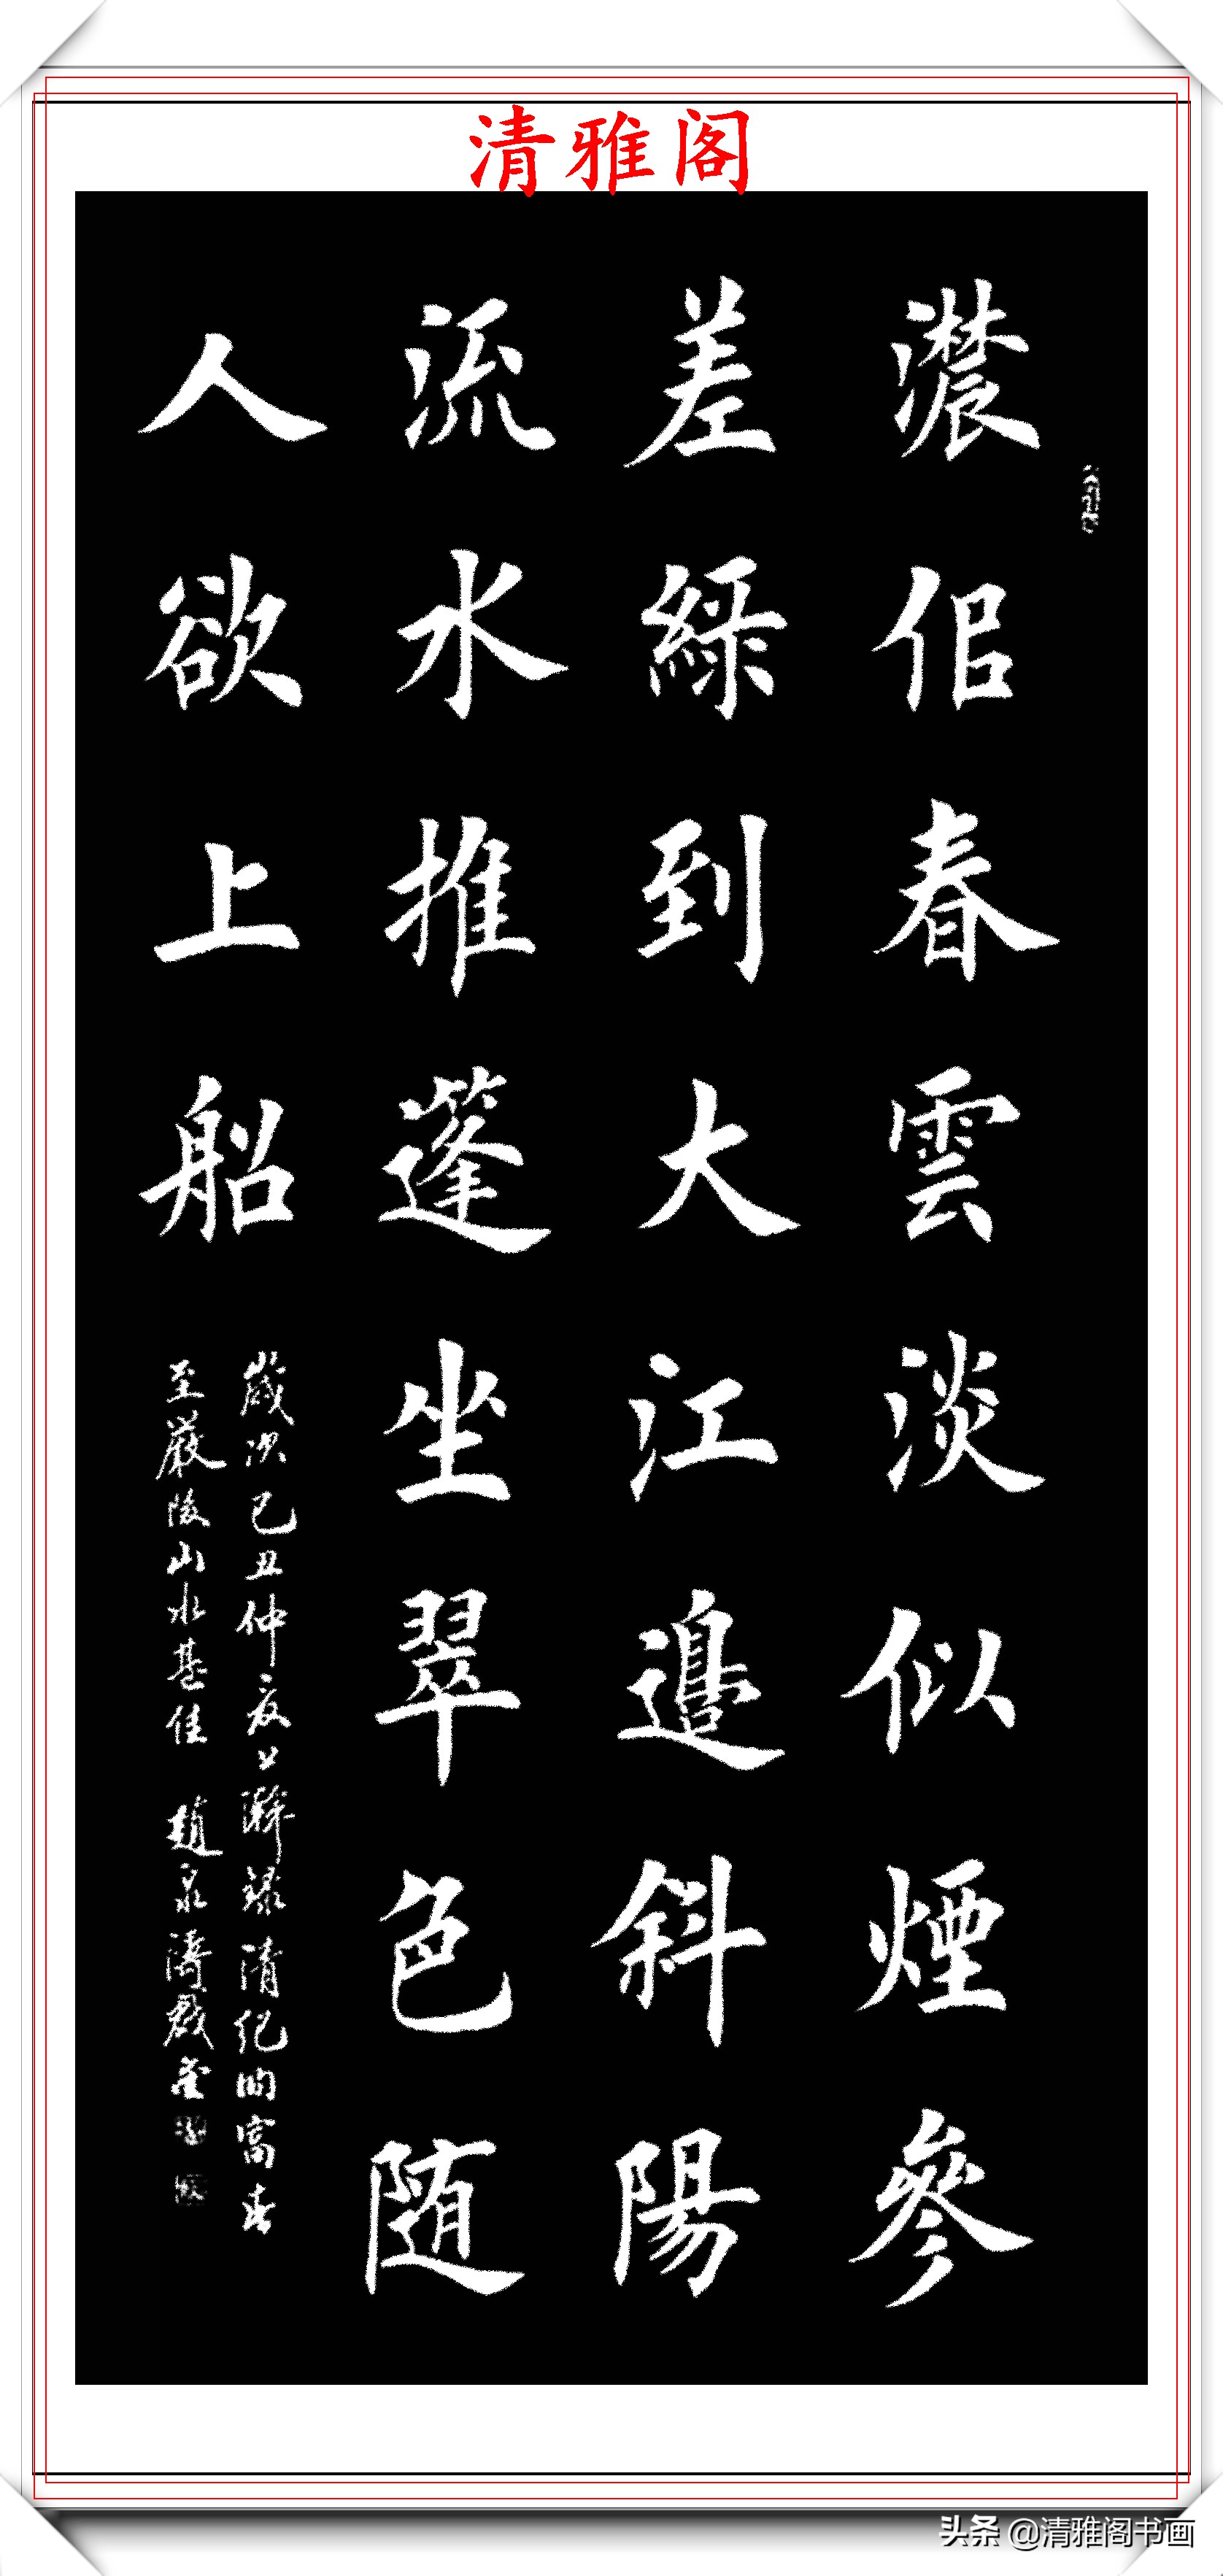 清雅阁
濃侣春雲淡似煙參
差綠到大江邊斜陽
流水推蓬坐翠色随
人欲上船
歲次己丑仲夏上澣錄清紀昀富春
至嚴陵山水甚佳 趙泉濤戲筆
头条 @清雅阁书画